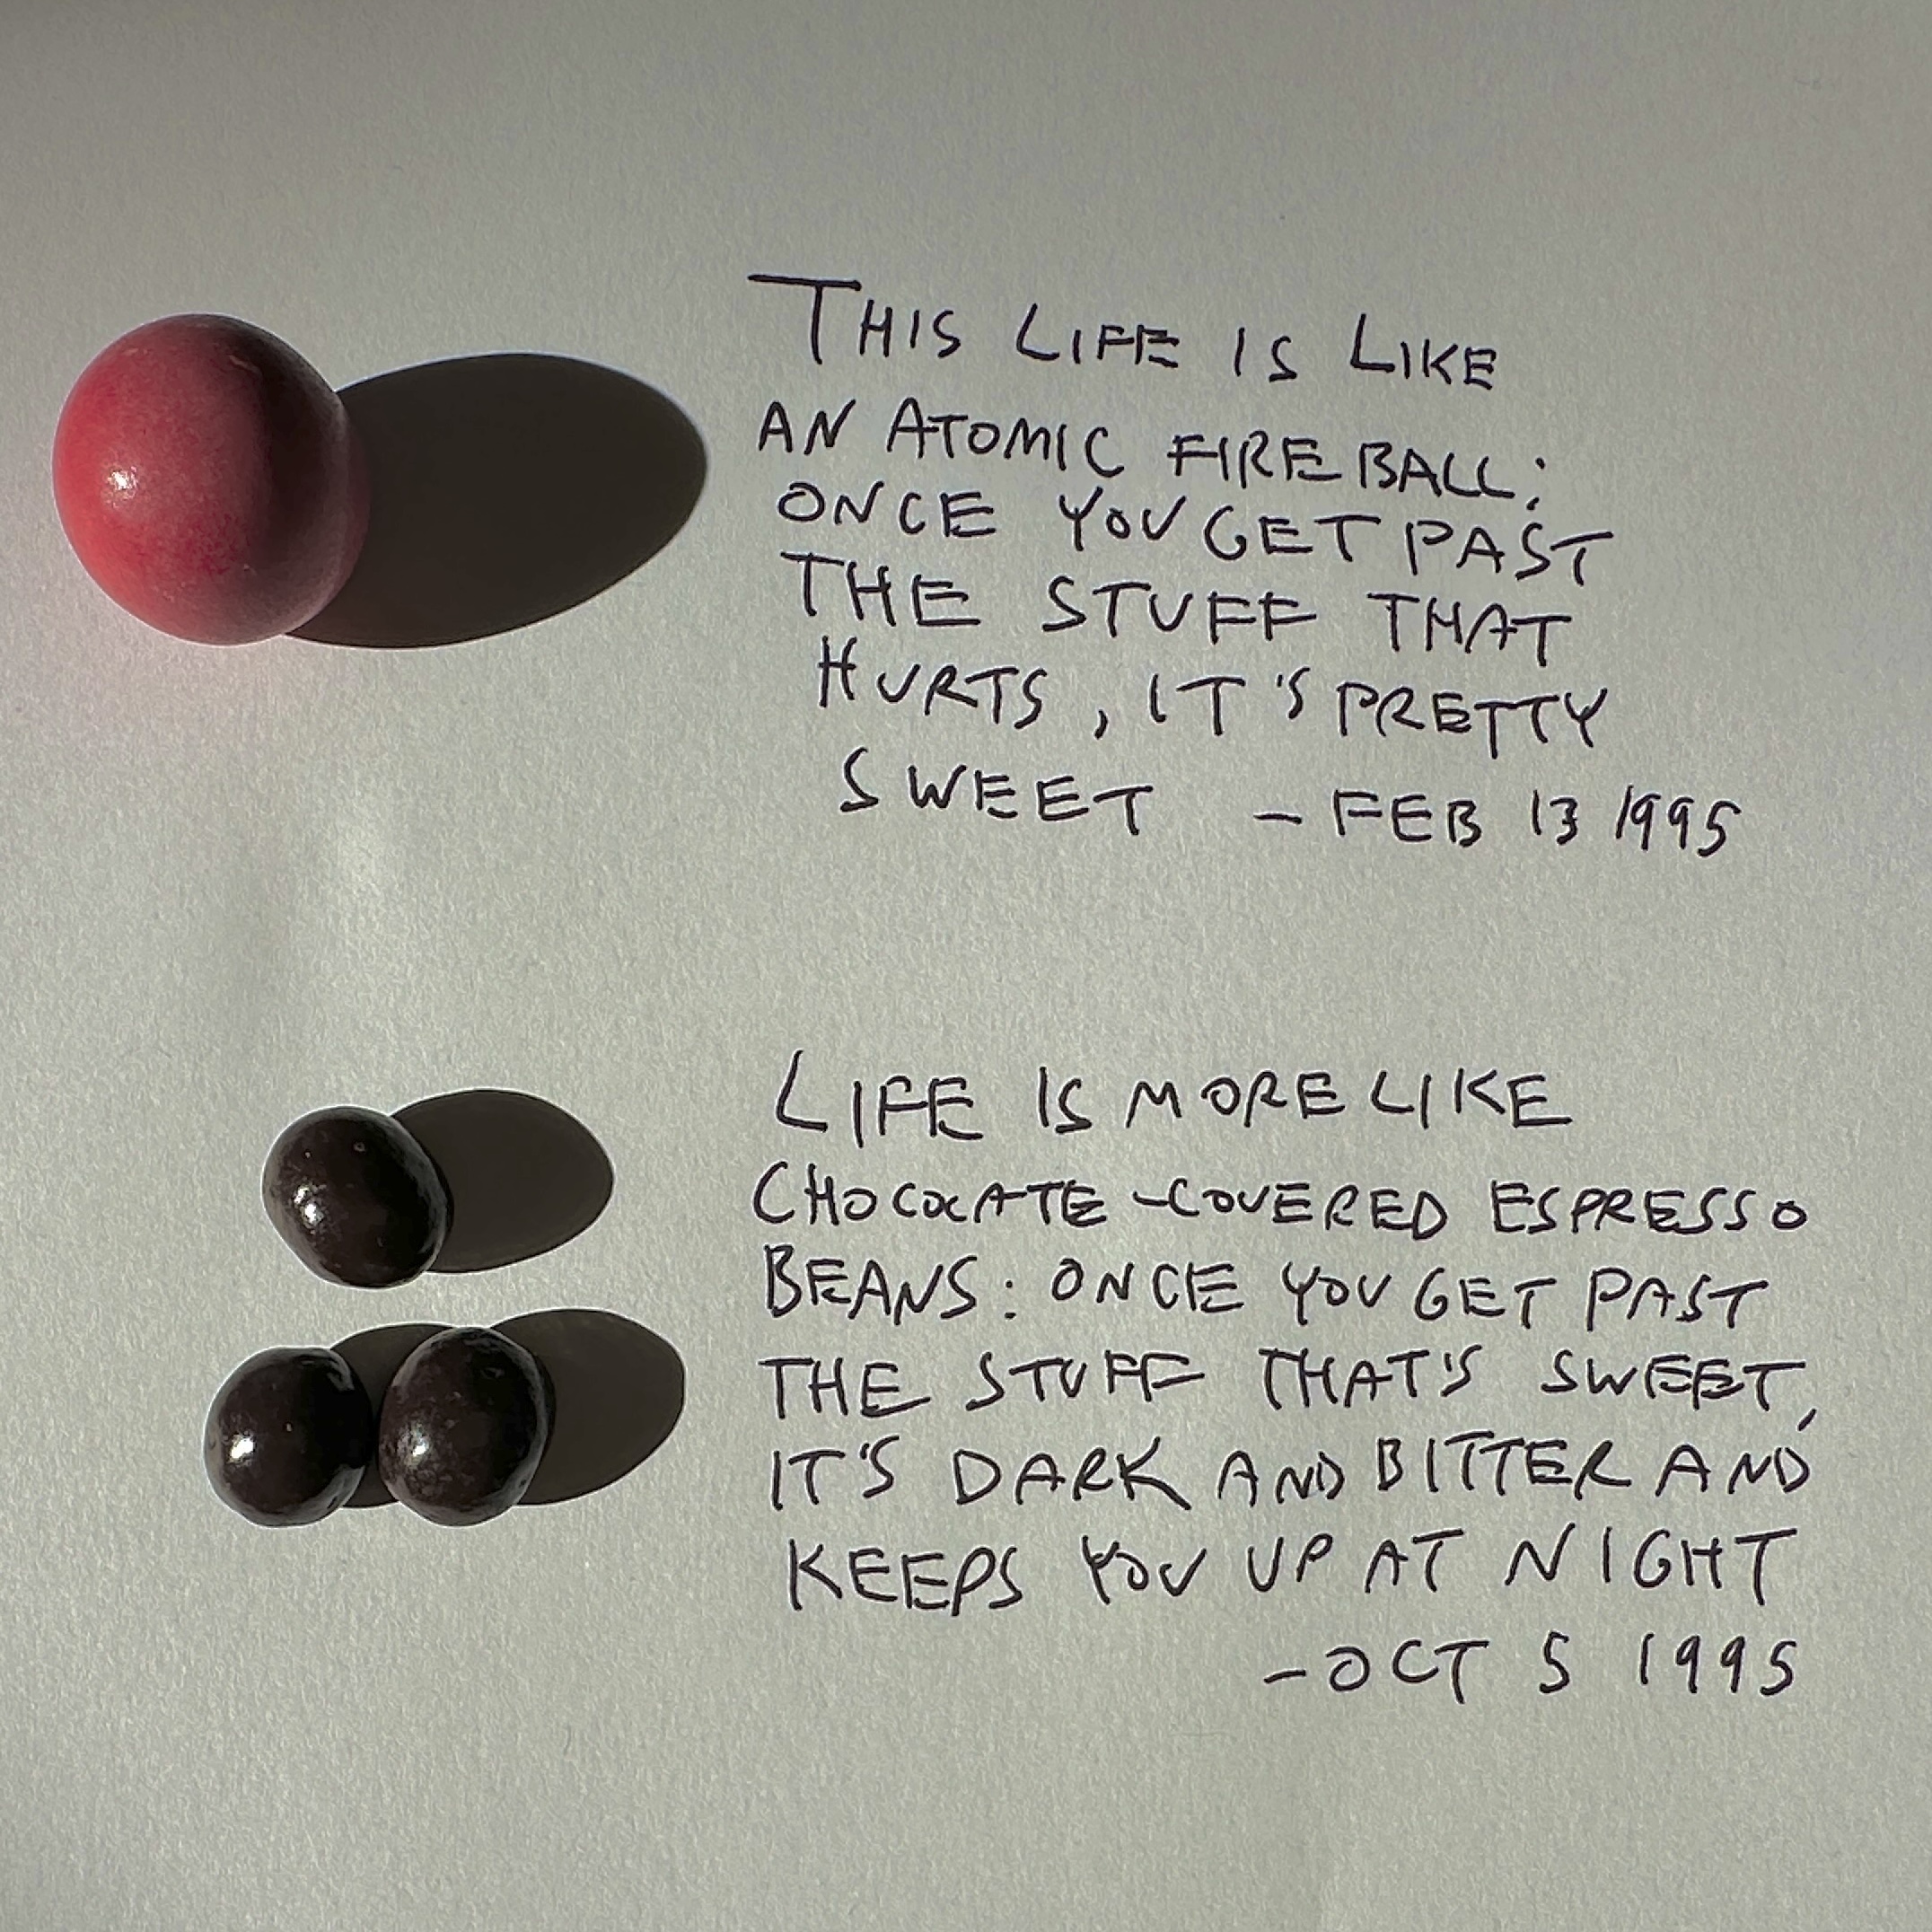 THIS LIFE IS LIKE
AN ATOMIC FIREBALL:
ONCE YOU GET PAST
THE STUFF THAT
HURTS, IT'S PRETTY
SWEET - FEB 13 1995
LIFE IS MORE LIKE
CHOCOLATE-COVERED ESPRESSO
BEANS: ONCE YOU GET PAST
THE STUFF THAT'S SWEET,
IT'S DARK AND BITTER AND
KEEPS YOU UP AT NIGHT
- OCT 5 1995